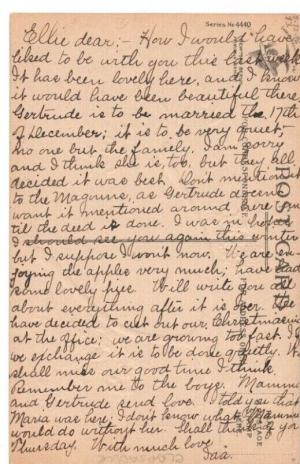 Series No 4440
Ellie dear;- How I would have
liked to be with you this last week
It has been lovely here, and I know
it would have been beautiful there.
Gertrude is to be married the 17th
of December; it is to be very quiet-
no one but the family. I am sorry
and I think she is, too, but they all
decided it was best. Don't mention it
to the Magnuns, as Gertrude doesn't
want it mentioned around here un-
til the deed is done. I was in hopes
I should see you again this winter
but I suppose I won't now. We are en-
joying the apples very much; have had
some lovely pies. Will write you all
about everything after it is over. We
have decided to cut out our Christmasing
at the Office; we are growing too fast. If
we exchange it is to be done quietly. We
shall miss our good time I think.
Remember me to the boys. Mamma
and Gertrude send love. I told you that
Maria was here; I don't know what Mamma
would do without her. Shall think of you
Thursday. With much love
Ida.